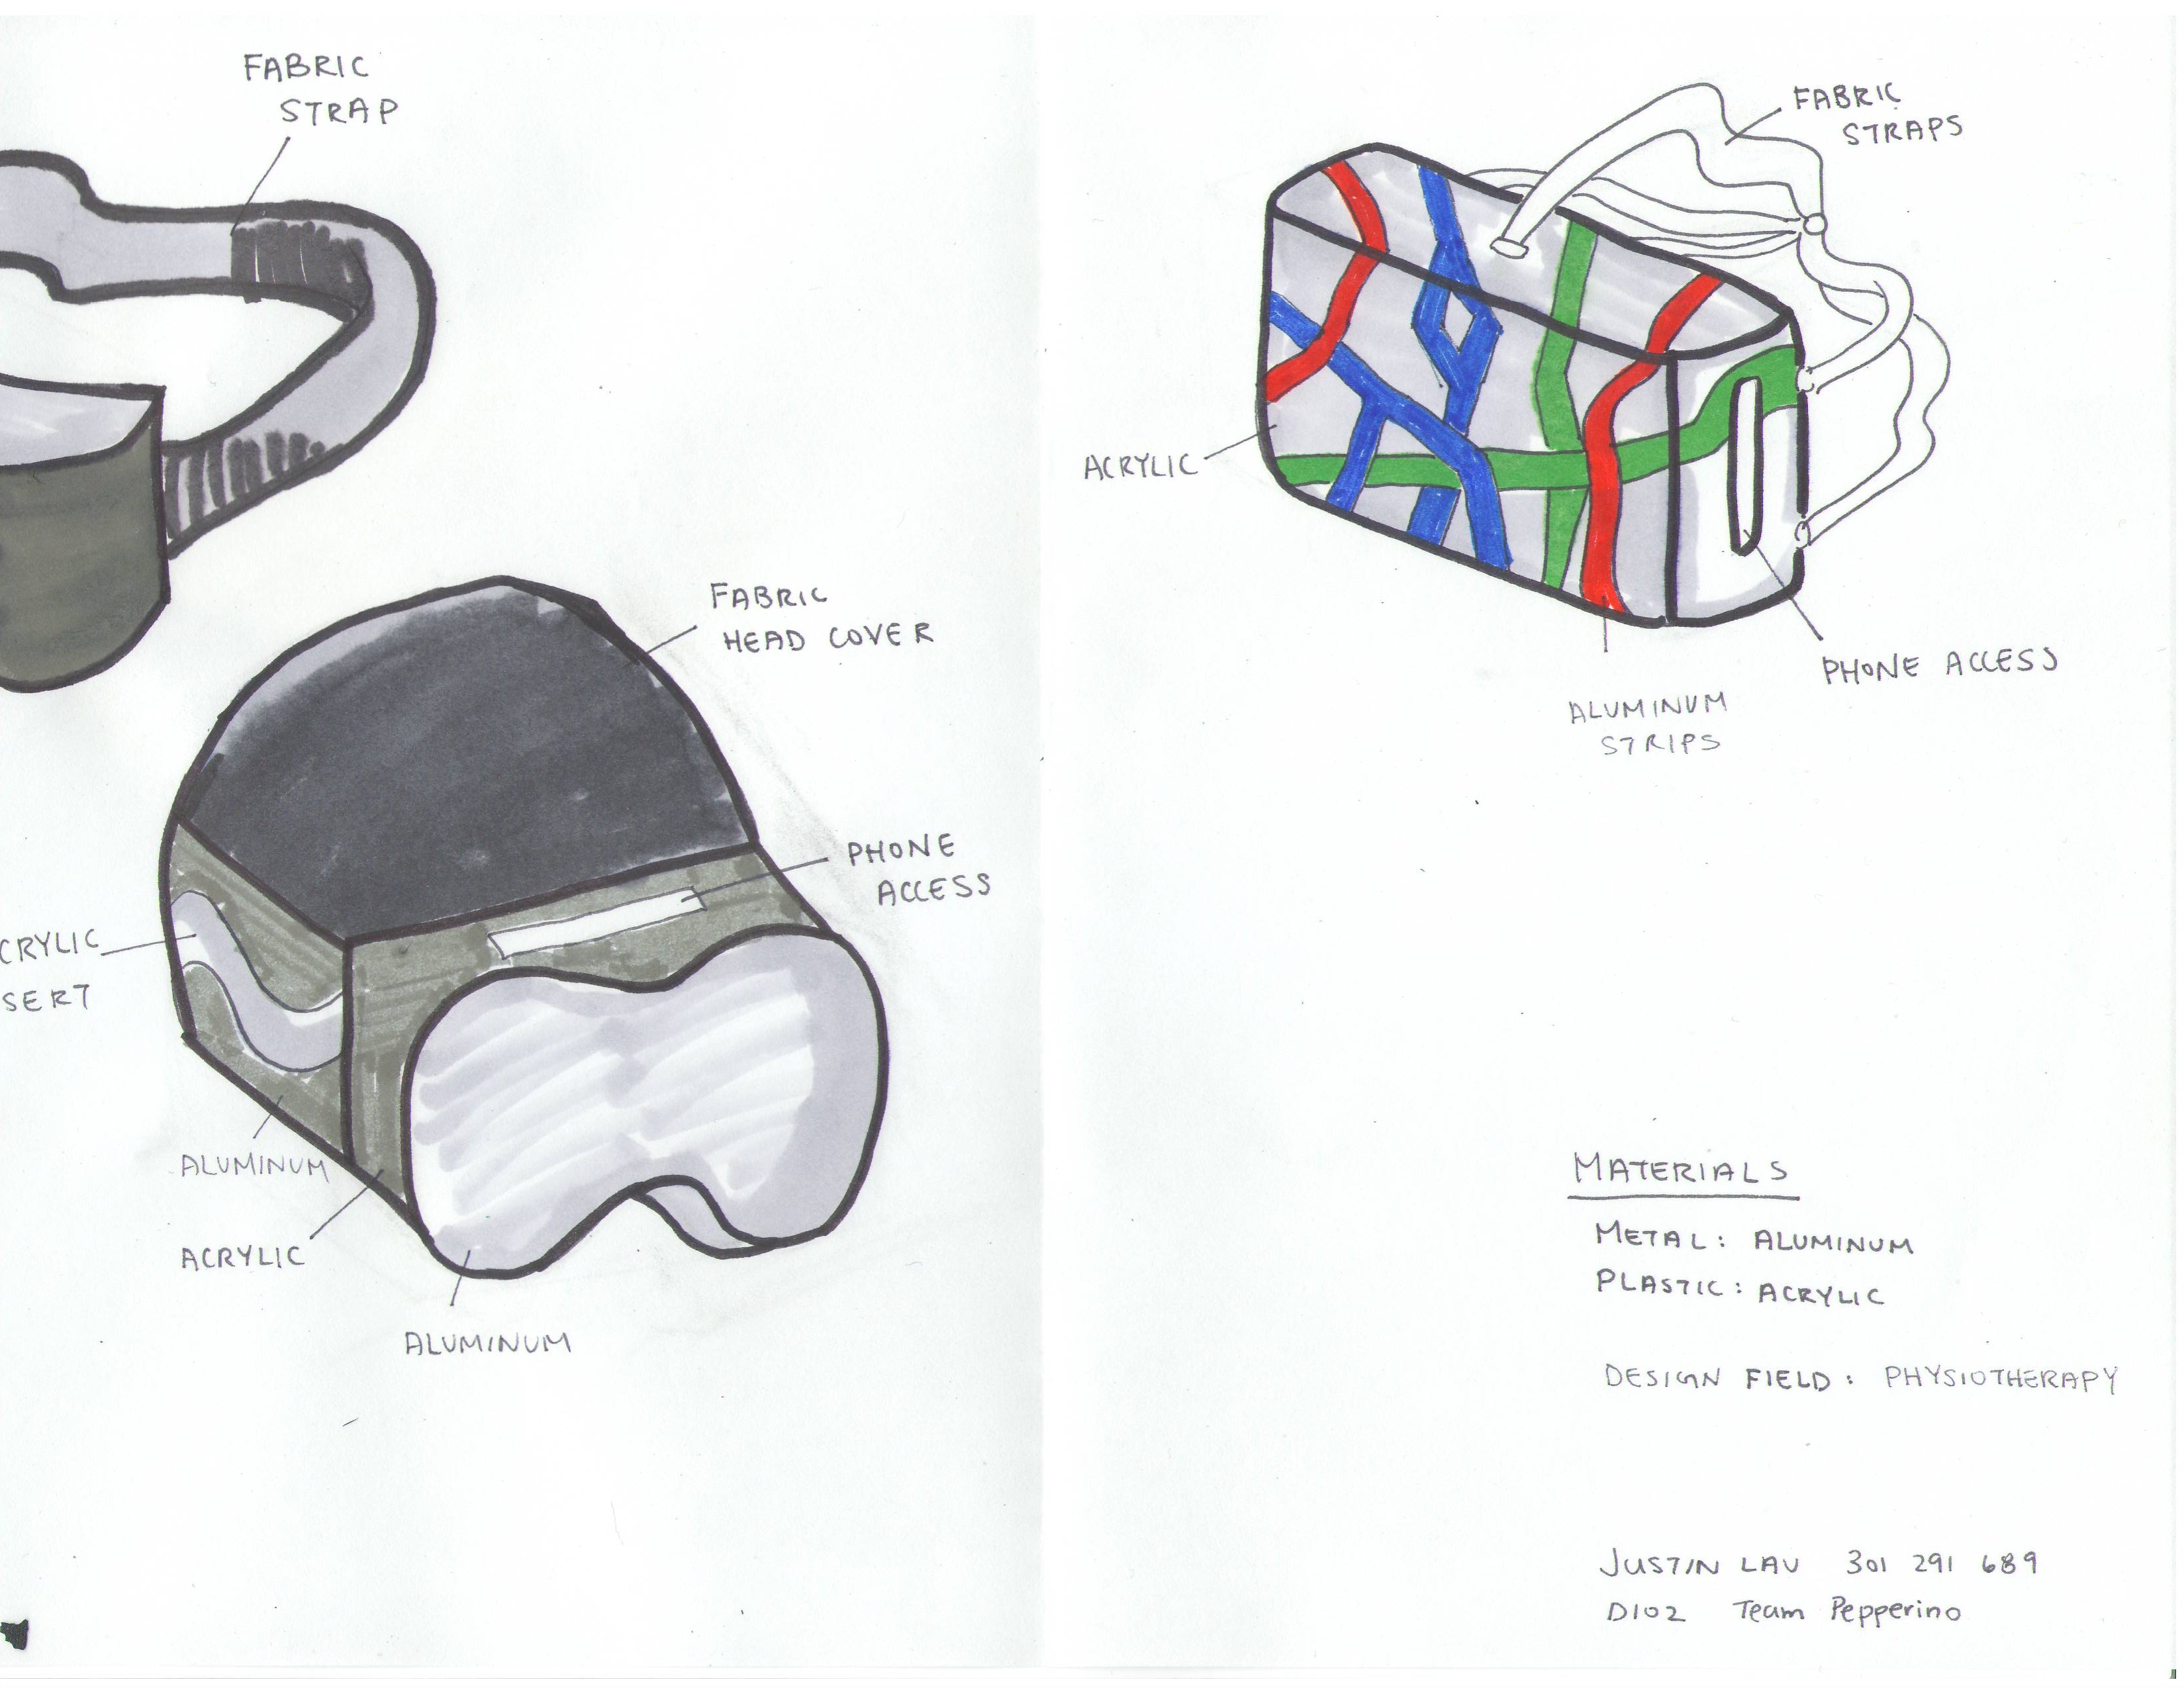 FABRIC
STRAP
FABRIC
HEAD COVER
PHONE
ACCESS
CRYLIC
SERT
ALUMINUM
ACRYLIC
ALUMINUM
FABRIC
STRAPS
ACRYLIC
PHONE ACCESS
ALUMINUM
STRIPS
MATERIALS
METAL: ALUMINUM
PLASTIC: ACRYLIC
DESIGN FIELD: PHYSIOTHERAPY
JUSTIN LAU 301 291 689
D102 Team Pepperino